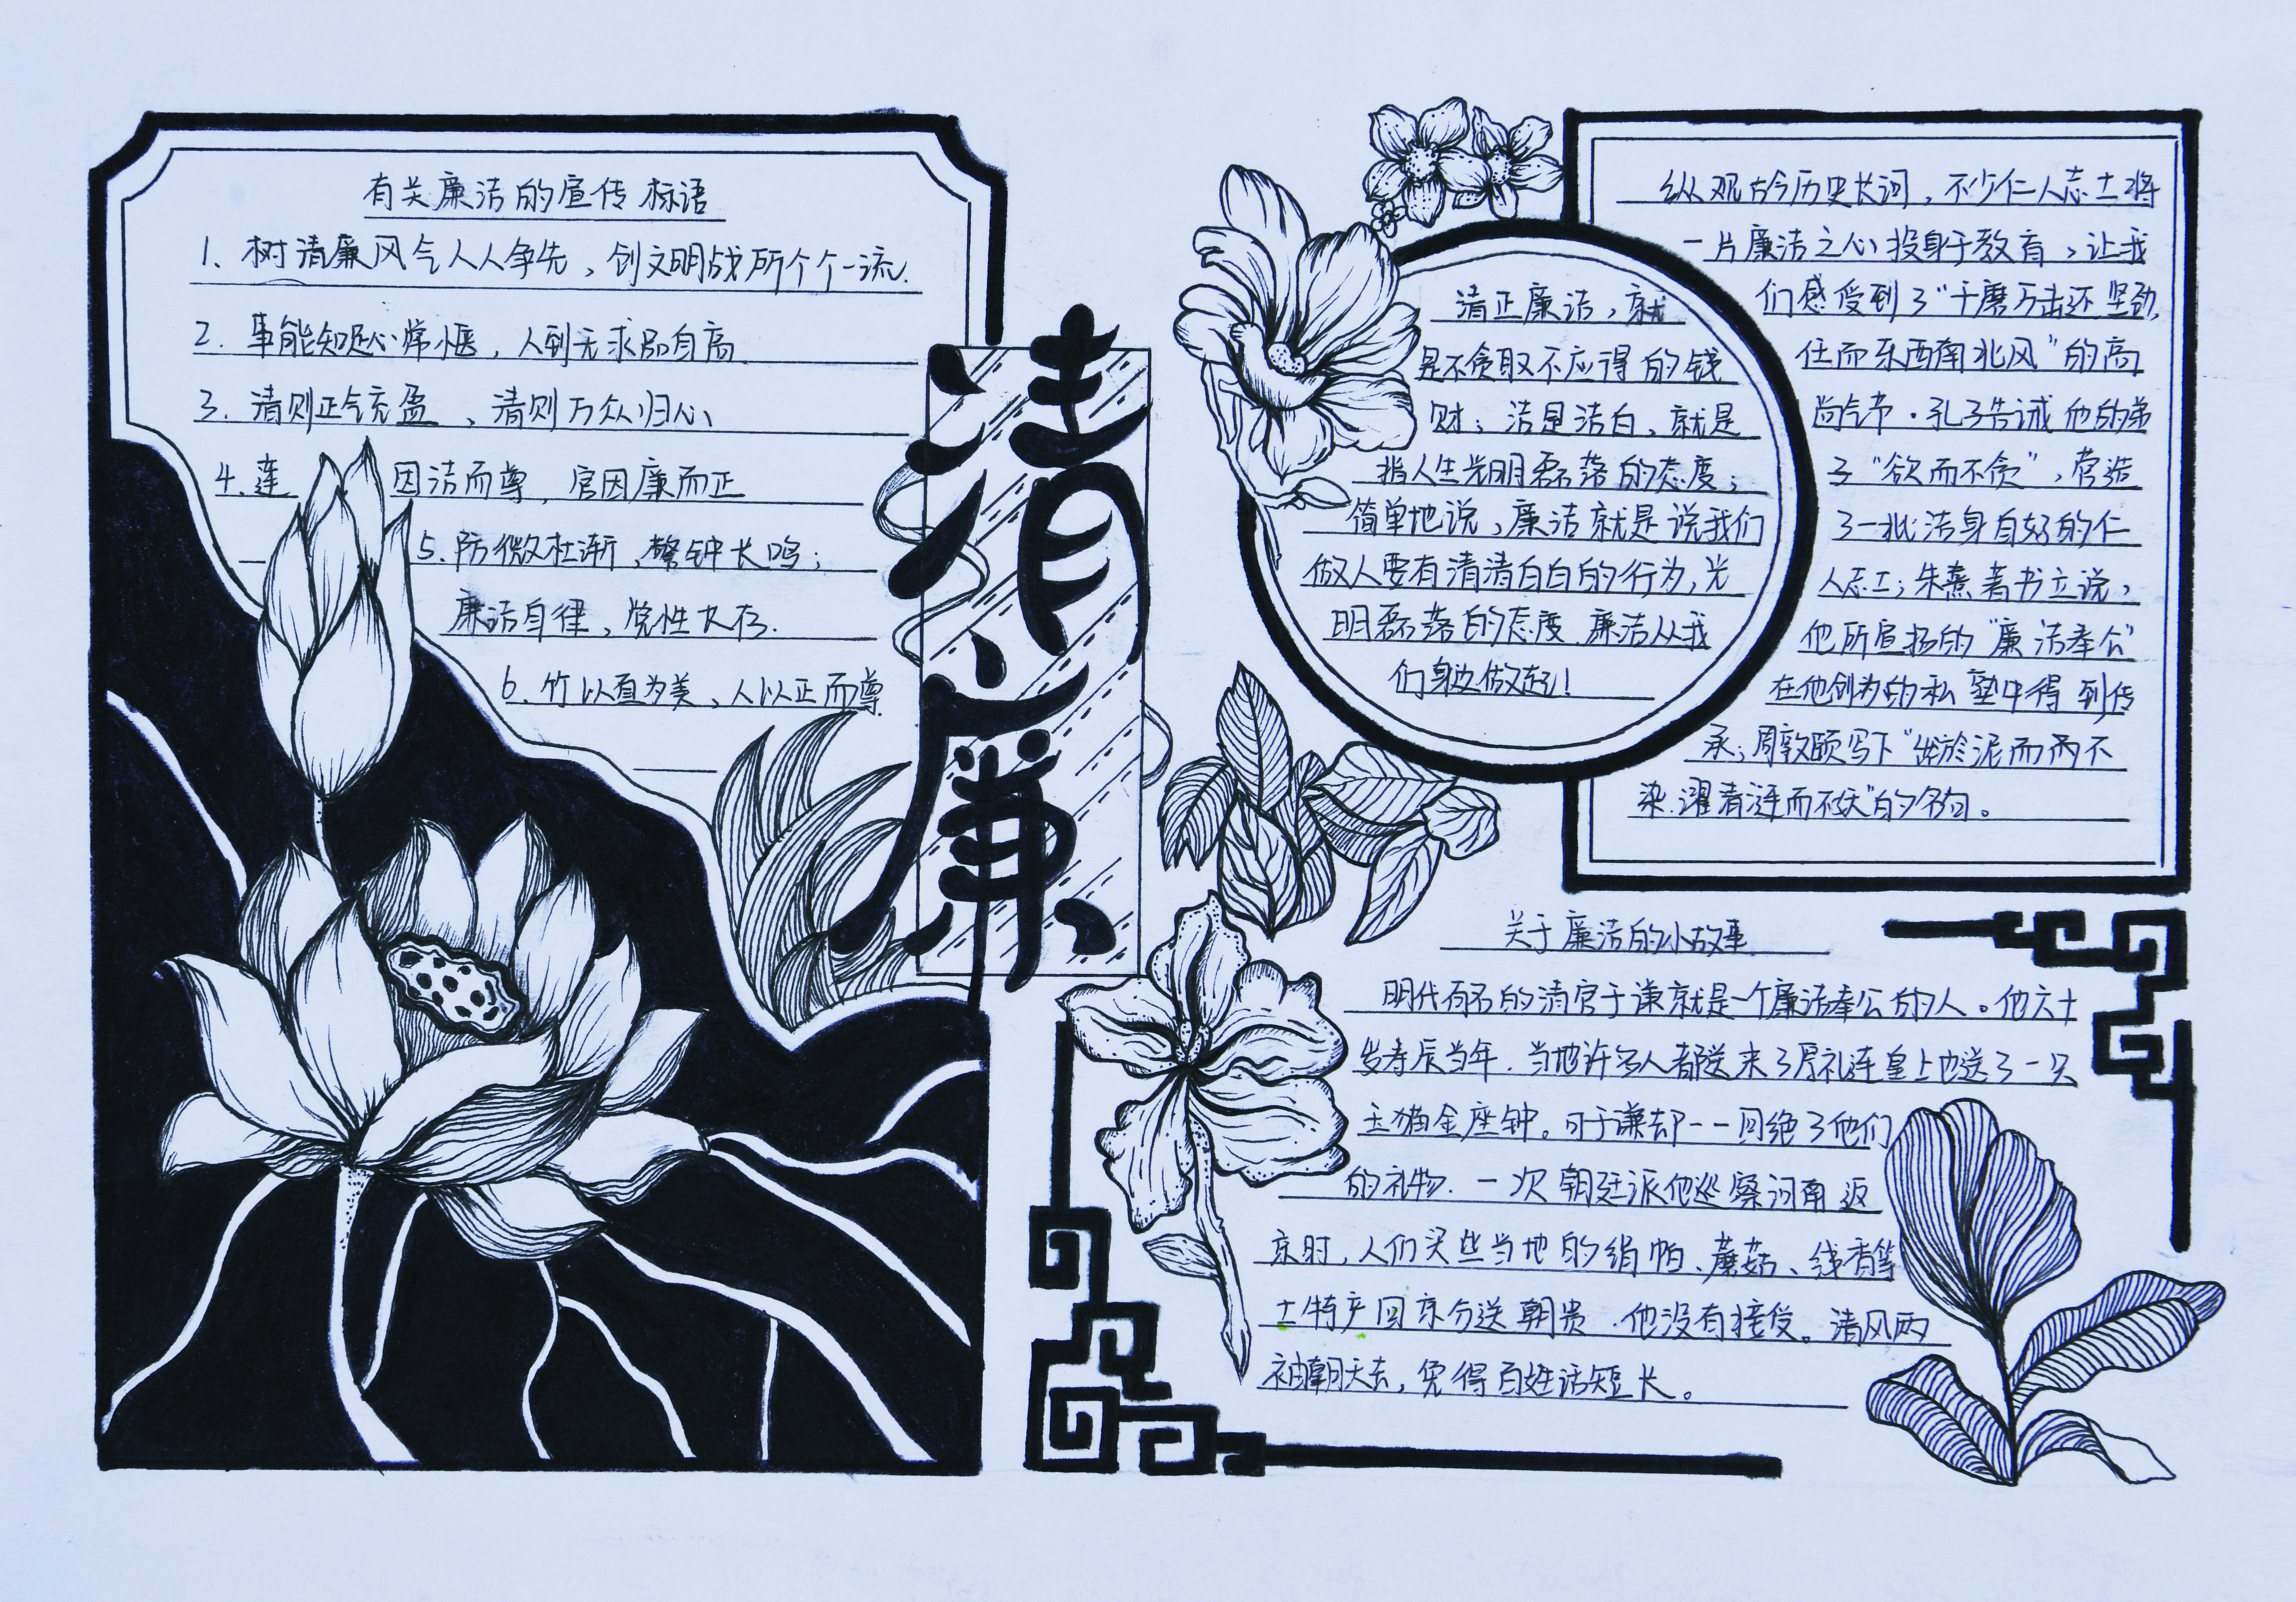 有关廉洁的宣传标语
1. 树清廉风气人人争先，创文明战所个个一流.
2. 事能知足心常惬，人到无求品自高
3. 清则正气充盈，清则万众归心
4. 莲因洁而尊，官因廉而正
5. 防微杜渐，警钟长鸣；
廉洁自律，党性大存.
6. 竹以直为美，人以正而尊
清廉
清正廉洁，就
是不贪取不应得的钱
财；洁是洁白，就是
指人生光明磊落的态度；
简单地说，廉洁就是说我们
做人要有清清白白的行为，光
明磊落的态度.廉洁从我
们身边做起！
纵观古今历史长河，不少仁人志士将
一片廉洁之心投身于教育，让我
们感受到了“千磨万击还坚劲，
任而东西南北风”的高
尚气节.孔子告诫他的弟
子“欲而不贪”，营造
了一批洁身自好的仁
人志士；朱熹著书立说，
他所宣扬的“廉洁奉公”
在他创为的私塾中得到传
承；周敦颐写下“出於泥而而不
染.濯清涟而不妖”的名句。
关于廉洁的小故事
明代有名的清官于谦就是一个廉洁奉公的人。他六十
岁寿辰当年.当地许多人都送来了厚礼连皇上也送了一只
玉猫金座钟。可于谦却一一回绝了他们
的礼物.一次朝廷派他巡察河南返
京时，人们买些当地的绢帕、蘑菇、线香等
土特产回京分送朝贵.他没有接受。清风两
袖朝天去，免得百姓话短长。